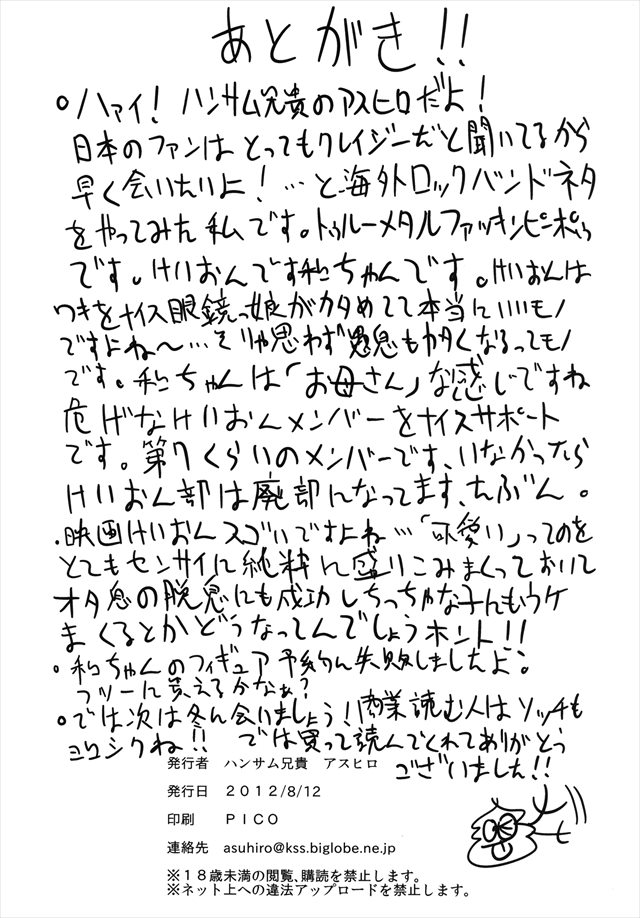 あとがき!!
○ハァイ! ハンサム兄貴のアスヒロだよ!
日本のファンはとってもクレイジーだと聞いてるから
早く会いたいよ!…と海外ロックバンドネタ
をやってみた私です。トゥルーメタルファッキンピーポゥ
です。けいおんです和ちゃんです。けいおんは
ワキをナイス眼鏡っ娘がカタめてて本当にいいモノ
ですよね〜…そりゃ思わず愚息もカタくなるってモノ
です。和ちゃんは「お母さん」な感じですね
危げなけいおんメンバーをナイスサポート
です。第7くらいのメンバーです、いなかったら
けいおん部は廃部になってます、たぶん。
・映画けいおんスゴいですよね…「可愛い」ってのを
とてもセンサイに純粋に盛りこみまくっておいて
オタ臭の脱臭にも成功しちっちゃな子にもウケ
まくるとかどうなってんでしょうホント!!
○和ちゃんのフィギュア予約に失敗しましたよ。
フツーに買えるかなぁ?
○では次は冬に会いましょう!!商業読む人はソッチも
ヨロシクね!! では買って読んでくれてありがとう
ございました!!
発行者 ハンサム兄貴 アスヒロ
発行日 2012/8/12
印刷 PICO
連絡先 asuhiro@kss.biglobe.ne.jp
※18歳未満の閲覧、購読を禁止します。
※ネット上への違法アップロードを禁止します。